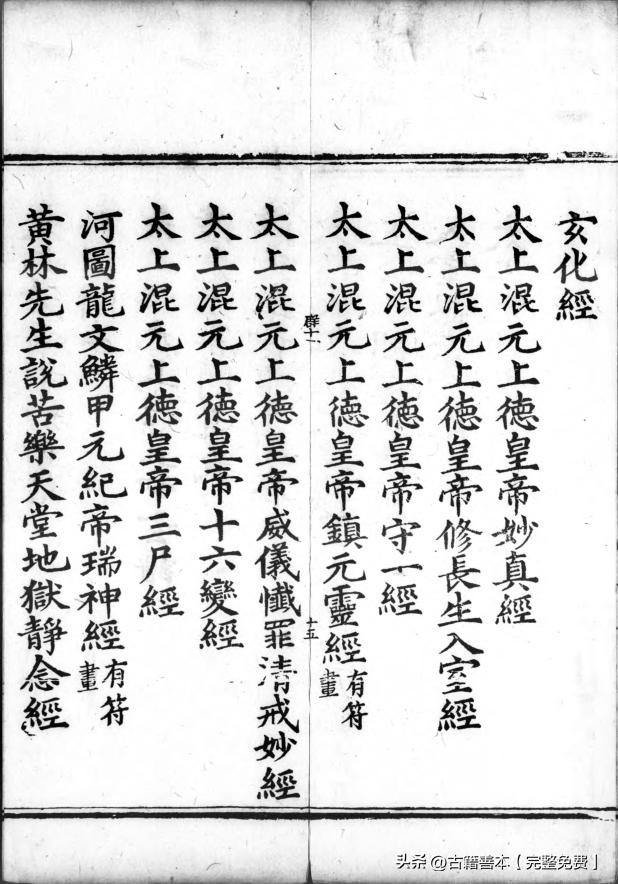 亥化經
太上混元上德皇帝妙真經
太上混元上德皇帝修長生入室經
太上混元上德皇帝守一經
太上混元上德皇帝鎮元靈經有符畫
群十一
十五
太上混元上德皇帝威儀懺罪清戒妙經
太上混元上德皇帝十六變經
太上混元上德皇帝三尸經
河圖龍文鱗甲元紀帝瑞神經有符畫
黃林先生說苦樂天堂地獄靜念經
头条 @古籍善本【完整免费】